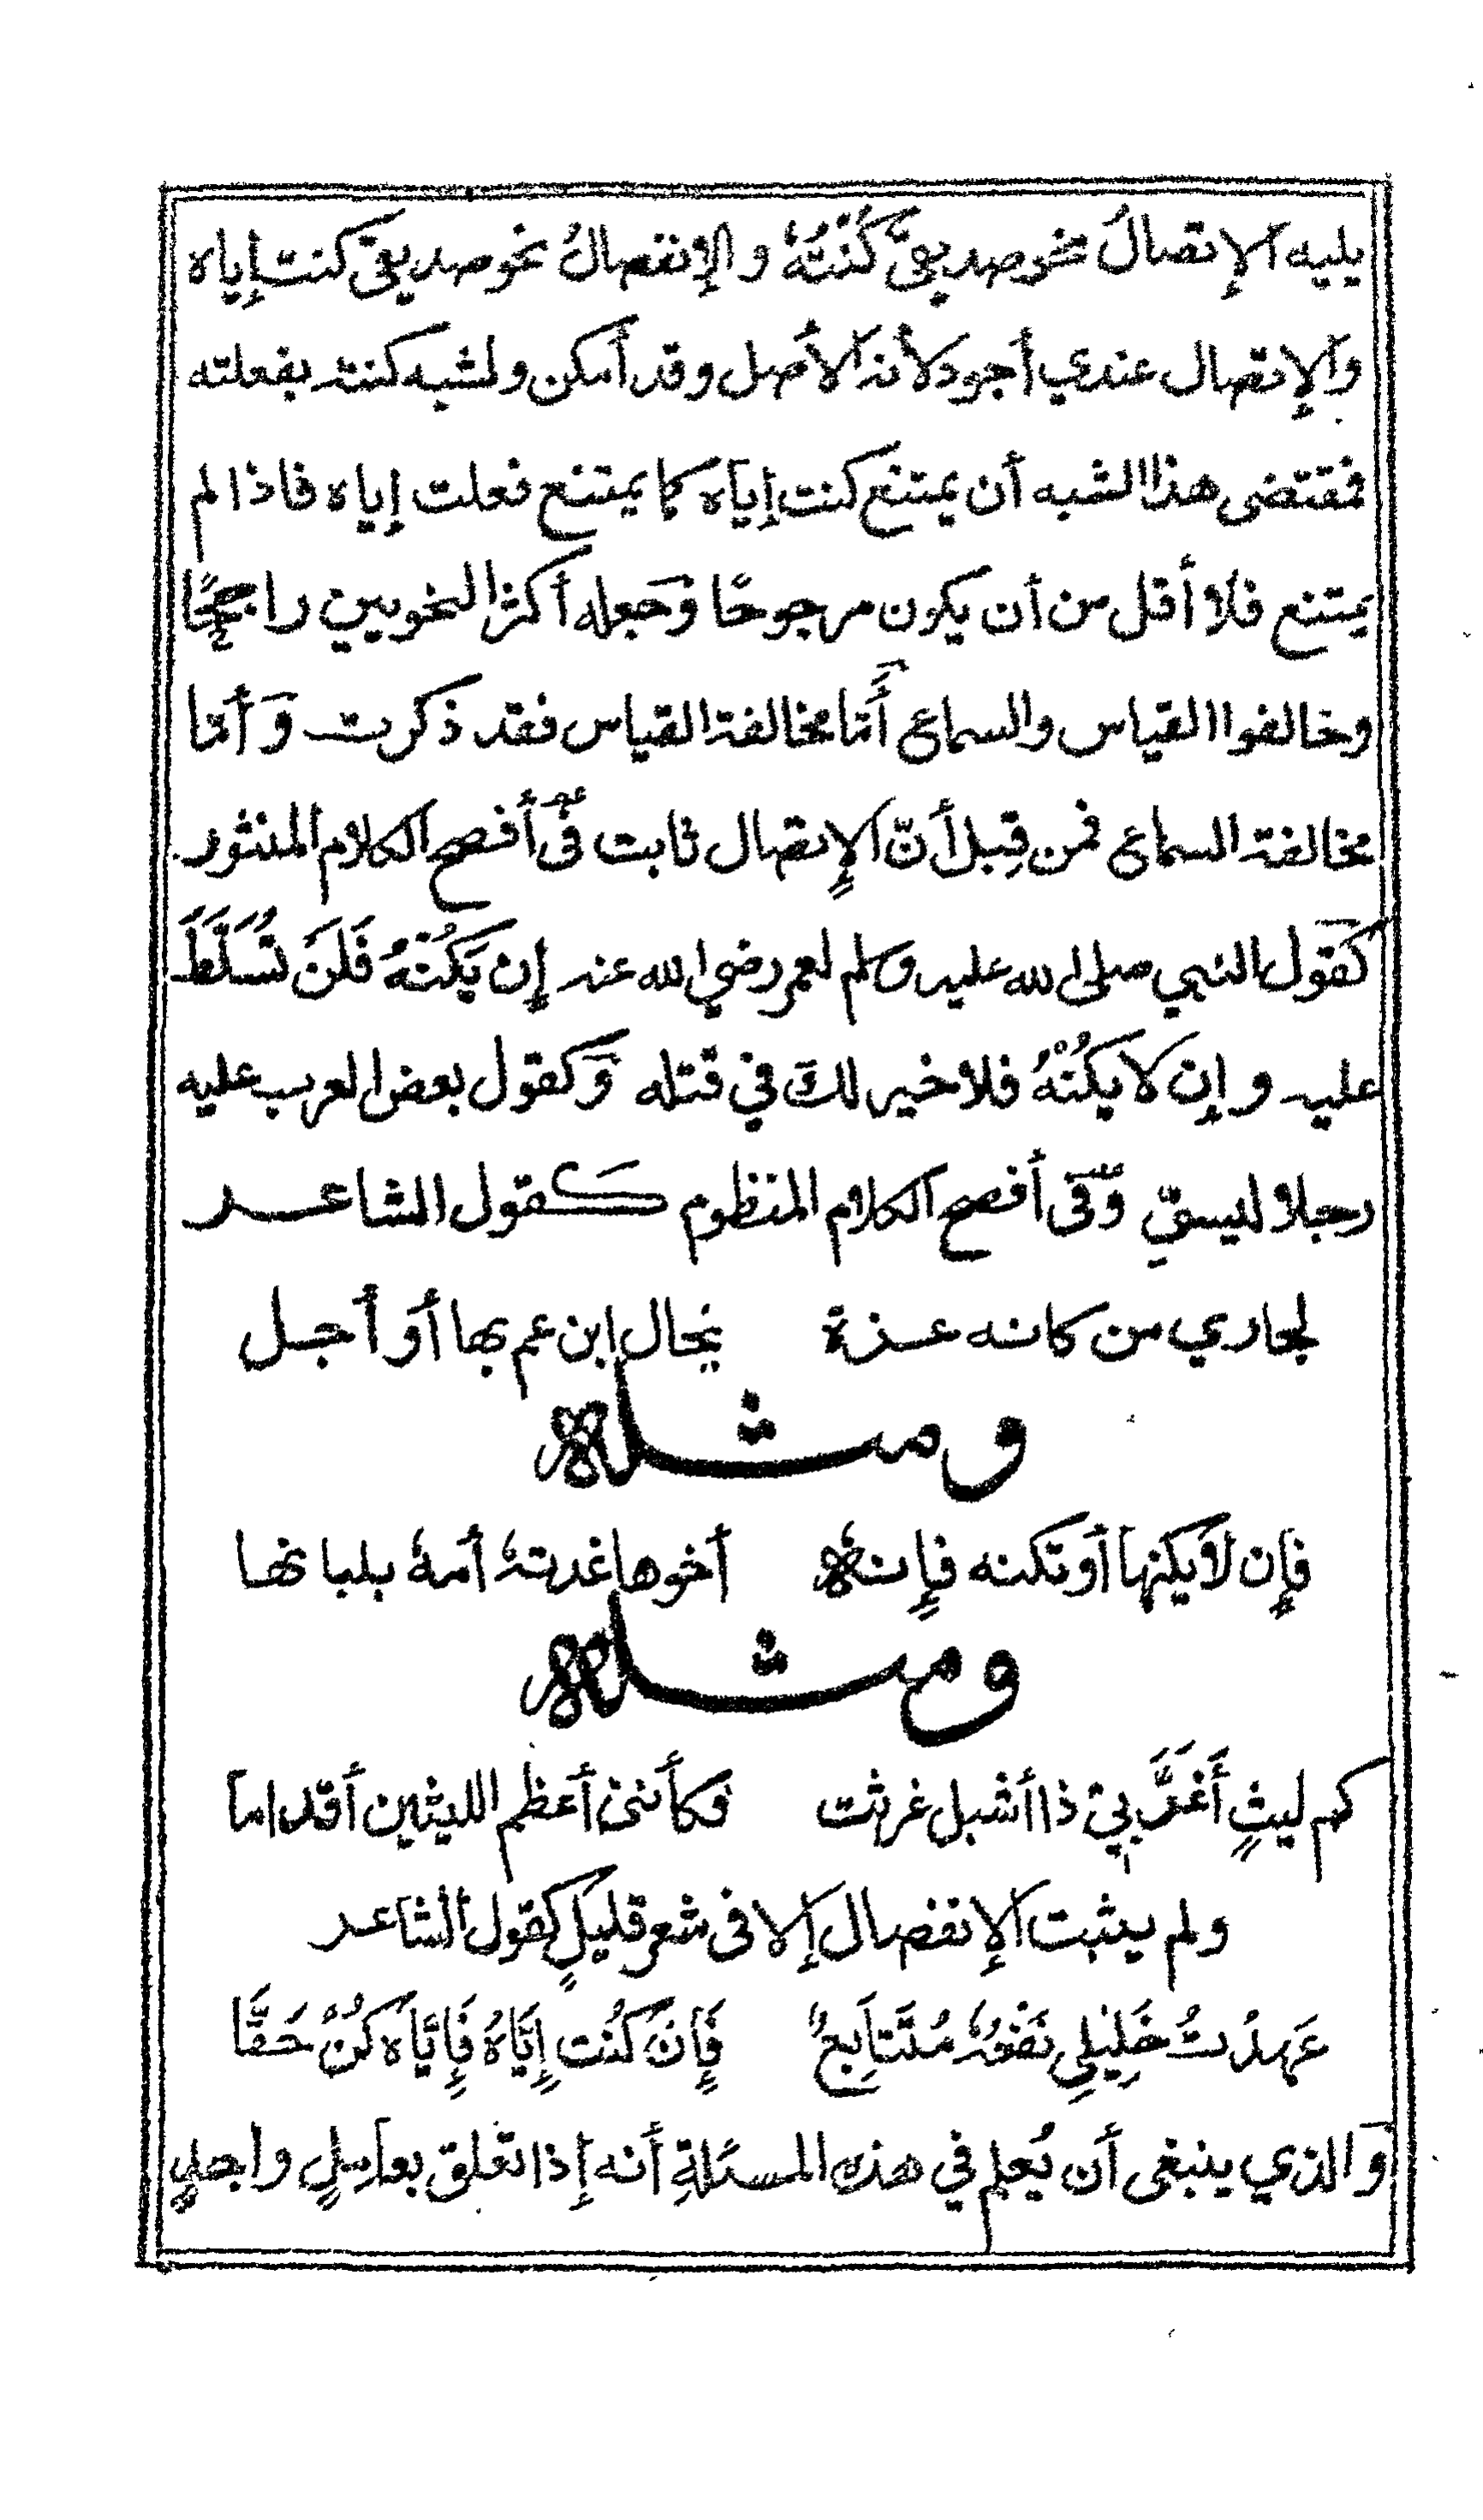 يليه الإتصالُ نحو صديقيَّ كُنْتُهُ والإنفصالُ نحو صديقي كنت إياه
والإتصال عندي أجود لأنه الأصل وقد أمكن ولشبه كنته بفعلته
فمقتضى هذا الشبه أن يمتنع كنت إياه كما يمتنع فعلت إياه فاذا لم
يمتنع فلا أقل من أن يكون مرجوحًا وَجعله أكثر النحويين راجحًا
وخالفوا القياس والسماع أَما مخالفة القياس فقد ذكرت وَأما
مخالفة السماع فمن قِبل أنّ الإتصال ثابت في أفصح الكلام المنثور
كَقول النبي صلى الله عليه وسلم لعمر رضي الله عنه إن يَكُنْهُ فَلَنَ تُسَلَّطَ
عليه وإن لا يكُنْهُ فلا خير لك في قتله وَكقول بعض العرب عليه
رجلا ليسني وَفي أفصح الكلام المنظوم كقول الشاعر
لجاري من كانه عزة يخال ابن عم بها أو أجل
ومثله
فإن لا يكنها أو تكنه فإنه أخوها غذته أمهُ بلبانها
ومثله
كم ليثٍ أَغَرَّ بيْ ذا أشبل غرثت فكأنني أعظم الليثين أقداما
ولم يثبت الإنفصال إلا في شعر قليلٍ كقول الشاعر
عَهِدْتُ خَلِيْلِي نَفْعُهُ مُتَتَابِعٌ فَإِنْ كُنْتَ إِيَّاهُ فَإِيَّاهُ كُنْ حَقًّا
وَالذي ينبغي أن يُعلم في هذه المسئلةِ أنه إذا تعلق بعاملٍ واحدٍ